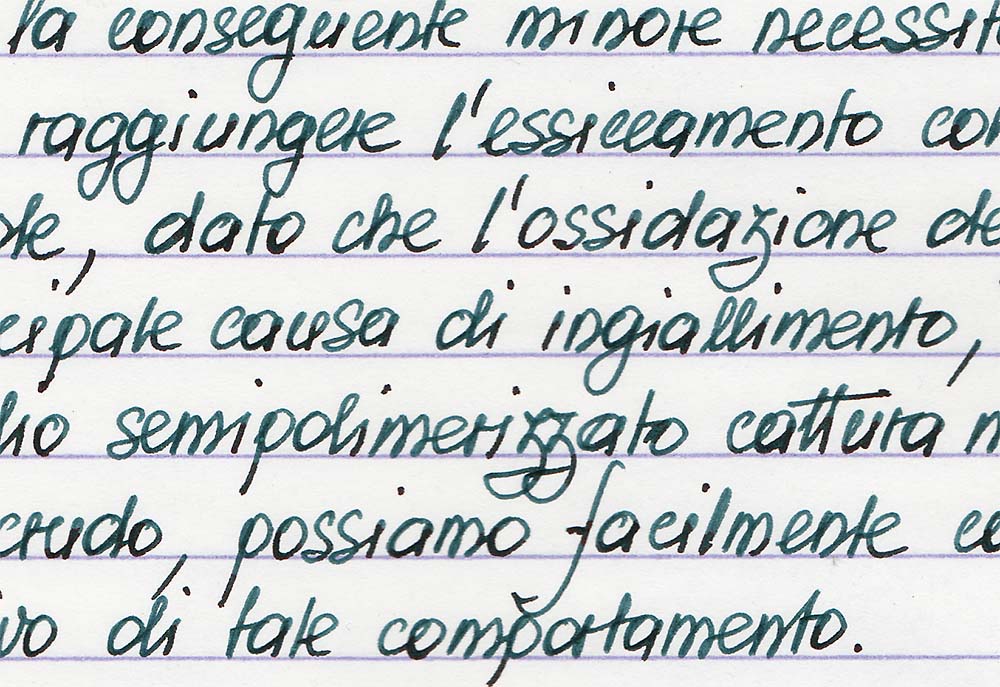 la conseguente minore necessit
raggiungere l'essiccamento con
te, dato che l'ossidazione de
cipale causa di ingiallimento,
lio semipolimerizzato cattura m
crudo, possiamo facilmente co
vo di tale comportamento.